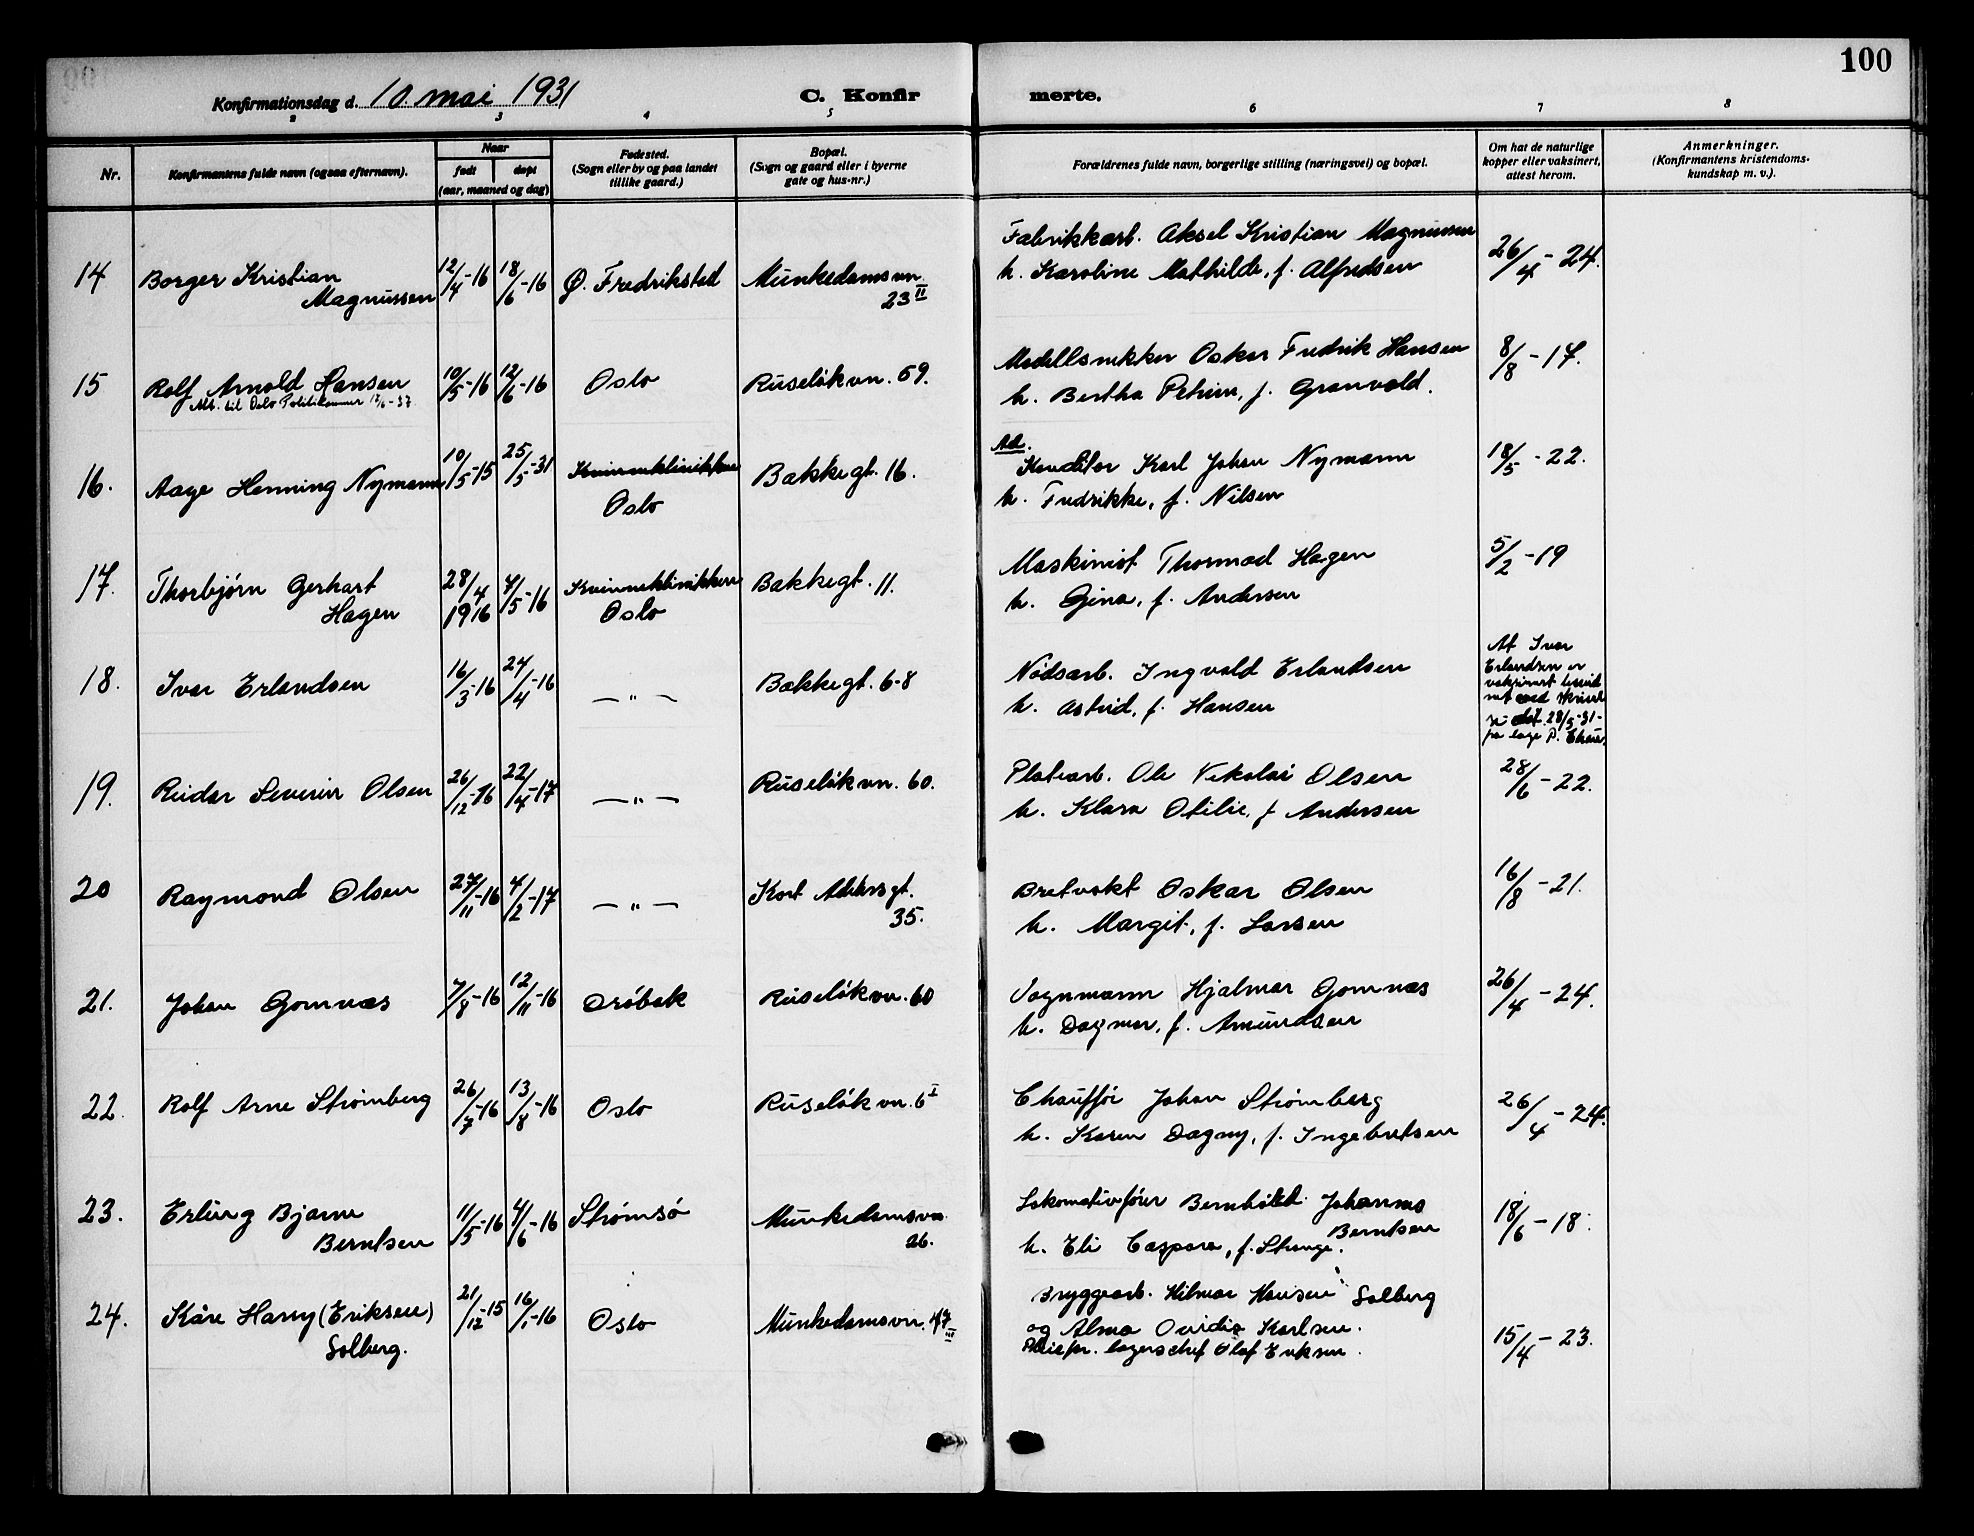 100
Konfirmationsdag d. 10. mai 1931
C. Konfirmerte.
2 3 4 5 6 7 8
Nr.
Konfirmantens fulde navn (ogsaa efternavn).
Naar
født
døpt
(aar, maaned og dag)
Fødested.
(Sogn eller by og paa landet
tillike gaard.)
Bopæl.
(Sogn og gaard eller i byerne
gate og hus-nr.)
Forældrenes fulde navn, borgerlige stilling (næringsvei) og bopæl.
Om hat de naturlige
kopper eller vaksinert,
attest herom.
Anmerkninger.
(Konfirmantens kristendoms-
kundskap m. v.).
14 Borger Kristian
Magnussen
12/4-16 18/6-16 Ø. Fredrikstad Munkedamsvn.
23 II
Fabrikkarb. Aksel Kristian Magnussen
h. Karoline Mathilde, f. Alfredsen
26/4-24.
15 Rolf Arnold Hansen
Att. til Oslo Politikammer
10/5-16 12/6-16 Oslo Ruseløkvn. 69.
Modellsnekker Oskar Fredrik Hansen
h. Bertha Petrine, f. Granvold.
8/8-17.
16. Aage Henning Nymann
10/5-15 25/5-31 Kvinneklinikken
Oslo
Bakkegt. 16.
Ad.
Konditor Karl Johan Nymann
h. Fredrikke, f. Nilsen
18/5-22.
17. Thorbjørn Gerhart
Hagen
28/4
1916
4/5-16 Kvinneklinikken
Oslo
Bakkegt. 11.
Maskinist Thormod Hagen
h. Gina, f. Andersen
5/2-19
18. Ivar Erlandsen
16/3-16 24/4-16 — " — Bakkegt. 6-8
Nødsarb. Ingvald Erlandsen
h. Astrid, f. Hansen
At Ivar
Erlandsen er
vaksinert bevid
net ved
28/5-31-
19. Reidar Severin Olsen
26/12-16 22/4-17 — " — Ruseløkvn. 60.
Platearb. Ole Nikolai Olsen
h. Klara Otilie, f. Andersen
28/6-22.
20 Raymond Olsen
27/11-16 4/2-17 — " — Kort Adelersgt.
35.
Bretvakt Oskar Olsen
h. Margit, f. Larsen
16/8-21.
21. Johan Gomnæs
7/8-16 12/11-16 Drøbak Ruseløkvn. 60
Vognmann Hjalmar Gomnæs
h. Dagmar, f. Amundsen
26/4-24.
22. Rolf Arne Strømberg
26/7-16 13/8-16 Oslo Ruseløkvn. 6 I
Chauffør Johan Strømberg
h. Karen Dagny, f. Ingebretsen
26/4-24.
23. Erling Bjarne
Berntsen
11/5-16 4/6-16 Strømsø Munkedamsvn.
26.
Lokomotivfører Johannes
Berntsen
h. Eli Caspara, f. Strange.
18/6-18.
24. Kåre Harry (Eriksen)
Solberg.
21/12-15 16/1-16 Oslo Munkedamsvn. 47 III
Bryggearb. Hilmar Hansen Solberg
og Alma Ovidia Karlsen.
Pleiefor. lagerschef Olaf Eriksen.
15/4-23.